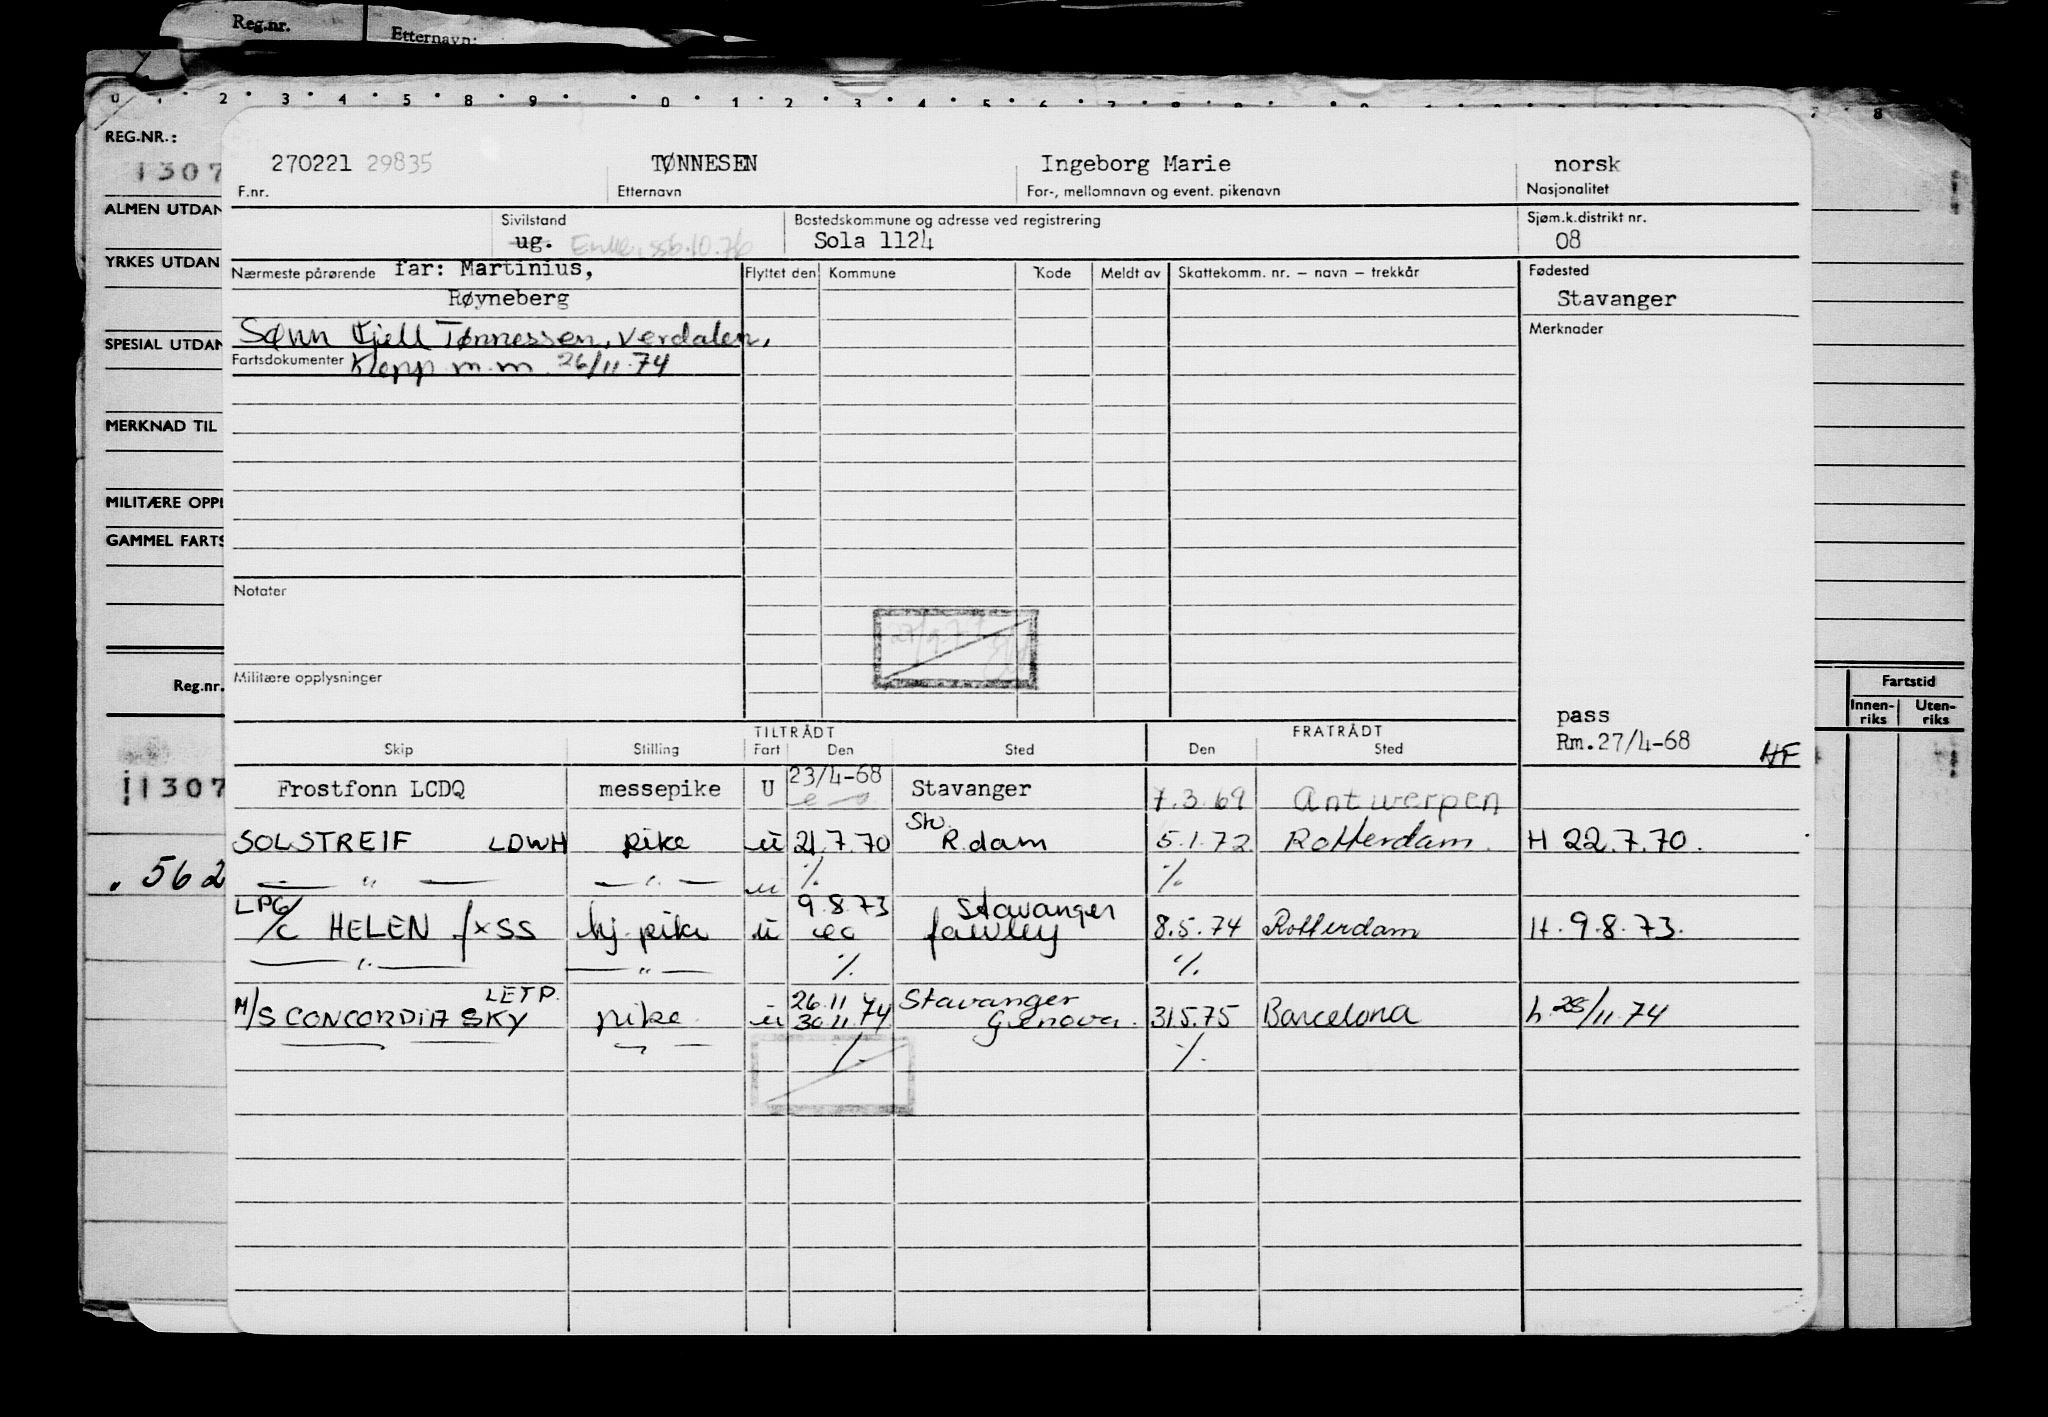 Reg.nr. Etternavn:
0 1 2 3 4 5 8 9 0 1 2 3 4 5 6 7 8
REG.NR.:
1307
270221 29835 TØNNESEN Ingeborg Marie norsk
F.nr. Etternavn For-, mellomnavn og event. pikenavn Nasjonalitet
ALMEN UTDAN
Sivilstand Bostedskommune og adresse ved registrering Sjøm.k.distrikt nr.
ug. Enke, ssb.10.76 Sola 1124 08
YRKES UTDAN
Nærmeste pårørende far: Martinius, Flyttet den Kommune Kode Meldt av Skattekomm. nr. – navn – trekkår Fødested
Røyneberg Stavanger
Sønn Kjell Tønnessen, Verdalen, Merknader
SPESIAL UTDAN
Fartsdokumenter Klepp m.m 26/11.74
MERKNAD TIL
MILITÆRE OPPL
GAMMEL FARTS
Notater
27/9.77
Militære opplysninger
Reg.nr. Fartstid
Innen-riks Uten-riks
pass
Rm.27/4-68 HF
TILTRÅDT FRATRÅDT
Skip Stilling Fart Den Sted Den Sted
Frostfonn LCDQ messepike U 23/4-68 Stavanger 7.3.69 Antwerpen
1307
SOLSTREIF LDWH pike u 21.7.70 Stv. R.dam 5.1.72 Rotterdam. H 22.7.70.
562
— " — — " — u % %
LPG/C HELEN fxSS hj.pike u 9.8.73 Stavanger fawley 8.5.74 Rotterdam H.9.8.73.
— " — — " — % %
M/S CONCORDIA SKY LETP. pike u 26.11 30.11.74 Stavanger Genova. 31.5.75 Barcelona h.28/11.74
% %